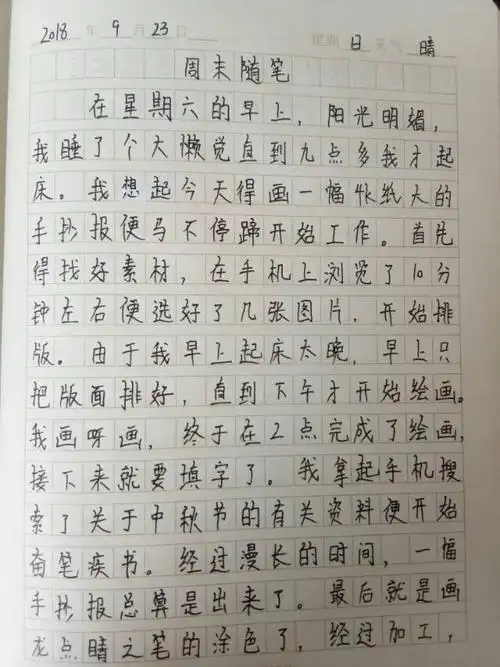 2018 年 9 月 23 日 星期 日 天气 晴
周末随笔
在星期六的早上，阳光明媚，
我睡了个大懒觉直到九点多我才起
床。我想起今天得画一幅4k纸大的
手抄报便马不停蹄开始工作。首先
得找好素材，在手机上浏览了10分
钟左右便选好了几张图片．开始排
版。由于我早上起床太晚，早上只
把版面排好，直到下午才开始绘画。
我画呀画，终于在2点完成了绘画，
接下来就要填字了。我拿起手机搜
索了关于中秋节的有关资料便开始
奋笔疾书。经过漫长的时间，一幅
手抄报总算是出来了。最后就是画
龙点睛之笔的涂色了，经过加工，